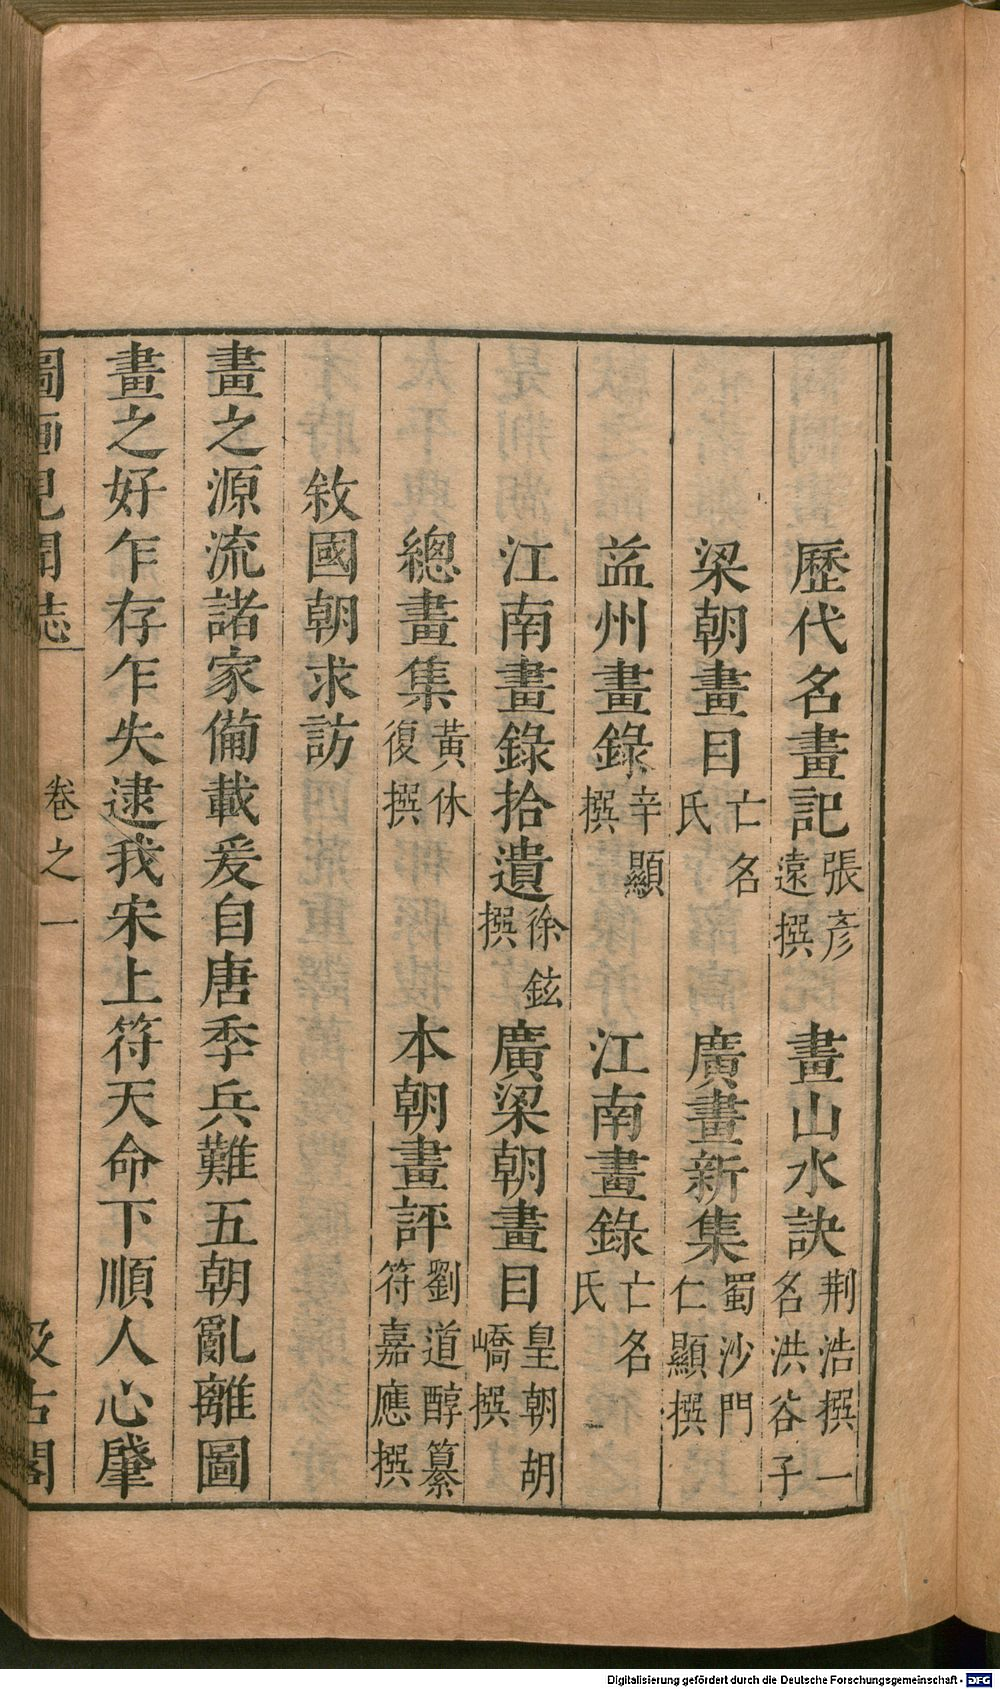 歷代名畫記張彥遠撰 畫山水訣荆浩撰一名洪谷子
梁朝畫目亡名氏 廣畫新集蜀沙門仁顯撰
益州畫錄辛顯撰 江南畫錄亡名氏
江南畫錄拾遺徐鉉撰 廣梁朝畫目皇朝胡嶠撰
總畫集黃休復撰 本朝畫評劉道醇纂符嘉應撰
敘國朝求訪
畫之源流諸家備載爰自唐季兵難五朝亂離圖
畫之好乍存乍失逮我宋上符天命下順人心肇
圖畫見聞志 卷之一 汲古閣
Digitalisierung gefördert durch die Deutsche Forschungsgemeinschaft - DFG